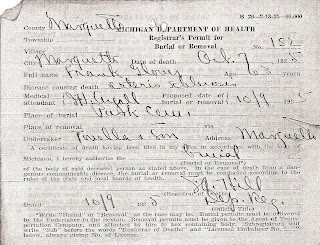 B 26-2-13-25-10,000
County Marquette MICHIGAN DEPARTMENT OF HEALTH
Township Registrar's Permit for
Village Burial or Removal No. 152
City Marquette Date of death Oct. 7 1925
Full name Frank Age 63 years
Disease causing death
Medical attendant Proposed date of burial or removal 10/9 1925
Place of burial Park Cem.
Place of removal
Undertaker & Son Address Marquette
A certificate of death having been filed in my office in accordance with the laws of
Michigan, I hereby authorize the Burial
(Burial or Removal)
of the body of said deceased person as stated above. In case of death from a dan-
gerous communicable disease, the burial or removal must be conducted according to the
rules of the state and local boards of health.
Hill
Dated 10/9 1925 Dep. Reg.
"Write "Burial" or "Removal" as the case may be. Burial permits must be delivered
by the Undertaker to the Sexton. Removal permits must be given to the Agent of Trans-
portation Company, and attached by him to box containing body. (Shippers will
write "of" before the words "Registrar of Deaths" and add "Embalmer's License No.
always giving No. of License.